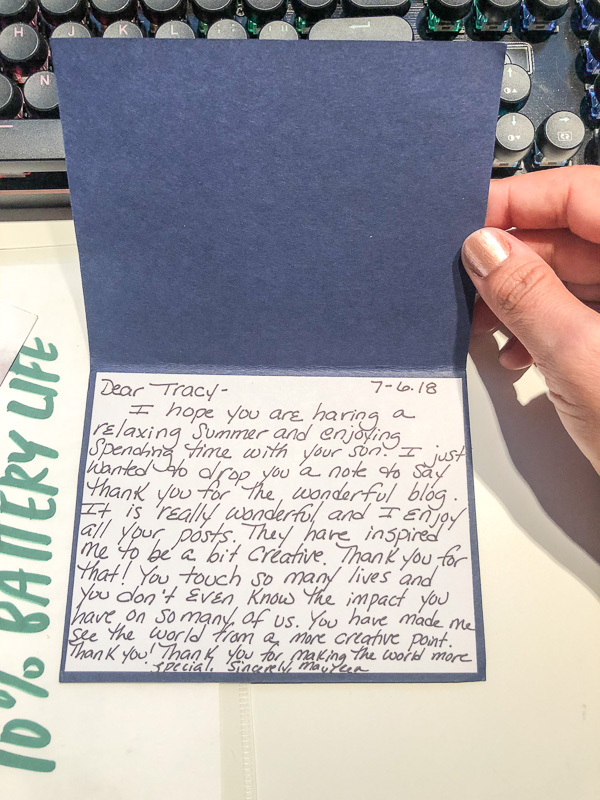 H J K L
N
Dear Tracy- 7-6.18
I hope you are having a
relaxing Summer and enjoying
Spending time with your son. I just
wanted to drop you a note to say
thank you for the wonderful blog.
It is really wonderful and I enjoy
all your posts. They have inspired
me to be a bit creative. Thank you for
that! You touch so many lives and
you don't even know the impact you
have on so many of us. You have made me
see the world from a more creative point.
Thank you! Thank you for making the world more
special. Sincerely, Maureen
10% BATTERY LIFE